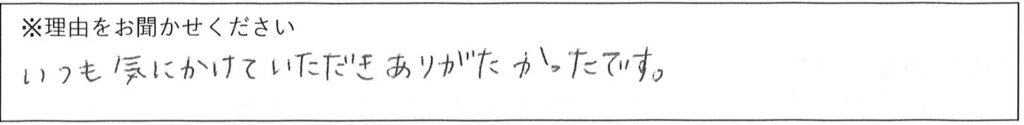 ※理由をお聞かせください
いつも気にかけていただきありがたかったです。